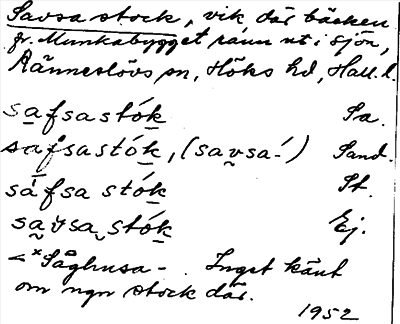 Savsa stock, vik där bäcken
fr. Munkabygget rann ut i sjön,
Ränneslövs sn, Höks hd, Hall. l.
safsastók Sa.
safsastók, (savsa-́) Sand.
sáfsa stók St.
savsa stók Ej.
<*Såghusa-. Inget känt
om ngn stock där.
1952